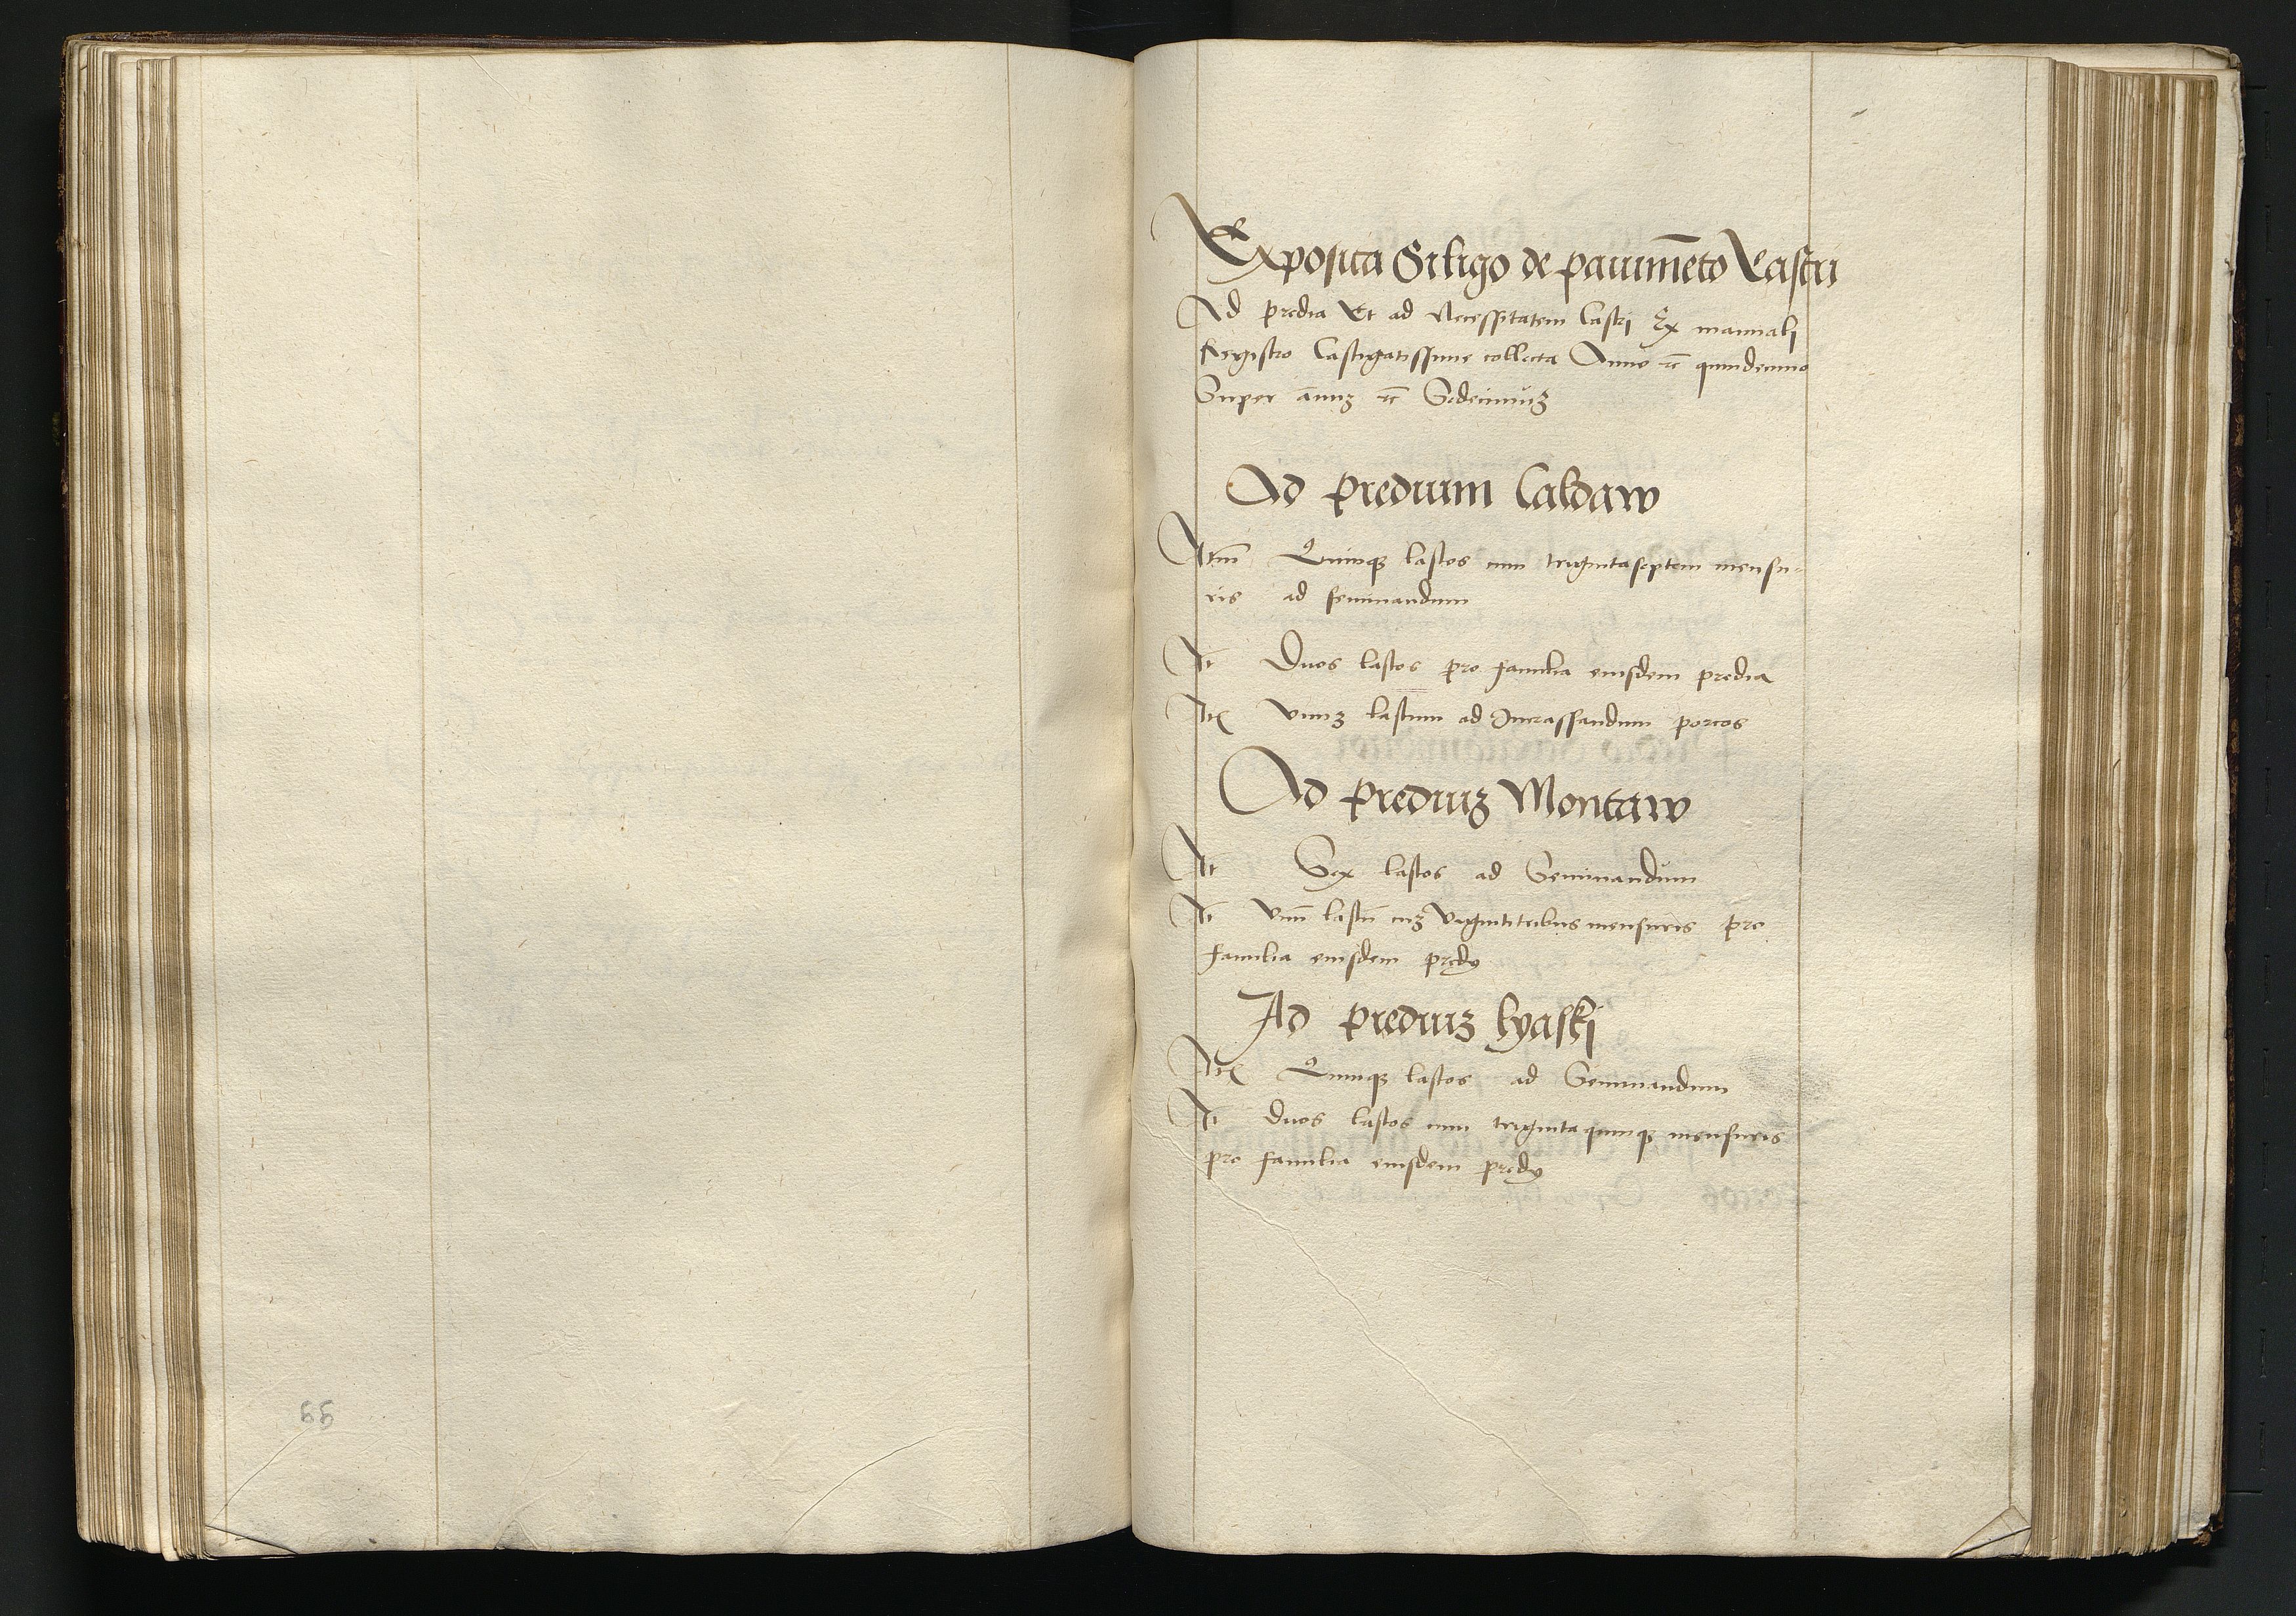 99
Exposita Siligo de pauimēto Castri
Ad predia Et ad Necessitatem Castri Ex manuali
Registro Castigatissime collecta Anno ⁊c̄ quindecimo
Super annuꝫ ⁊c̄ Sedecimuꝫ
Ad predium Caldaw
Itm̄ Quinqꝫ lastos cum trigintaseptem mensu-
ris ad seminandum
It Duos lastos pro familia eiusdem predia
Itē Vnuꝫ lastum ad Incrassandum porcos
Ad prediuꝫ Montaw
It Sex lastos ad Seminandum
It Vnū lastū cuꝫ viginti tribus mensuris pro
familia eiusdem predij
Ad prediuꝫ lyaski
Itē Quinqꝫ lastos ad Seminandum
It duos lastos cum triginta quinqꝫ mensuris
pro familia eiusdem predij